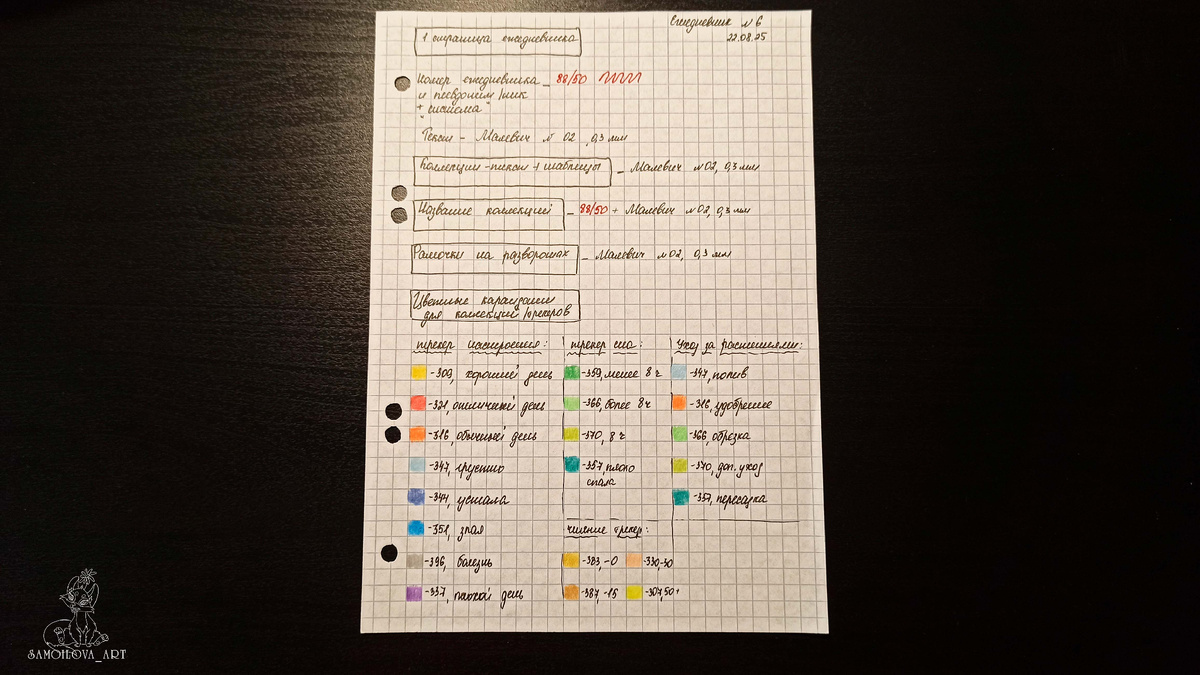 Ежедневник №6
22.08.25
1 страница ежедневника
Номер ежедневника - 88/50
и псевдоним/ник
+ "система"
Текст - Малевич №02, 0,3 мм
Коллекции - текст + таблицы - Малевич №02, 0,3 мм
Название коллекций - 88/50 + Малевич №02, 0,3 мм
Рамочки на разворотах - Малевич №02, 0,3 мм
Цветные карандаши
для коллекций/трекеров
трекер настроения:
-309, хороший день
-321, отличный день
-316, обычный день
-347, грустно
-344, устала
-351, злая
-396, болезнь
-337, плохой день
трекер сна:
-359, менее 8 ч
-366, более 8 ч
-370, 8 ч
-357, плохо
спала
Уход за растениями:
-347, полив
-316, удобрение
-366, обрезка
-370, доп. уход
-357, пересадка
чтение трекер:
-383, -0
-330, -30
-387, -15
-307, 50+
SAMOILOVA_ART